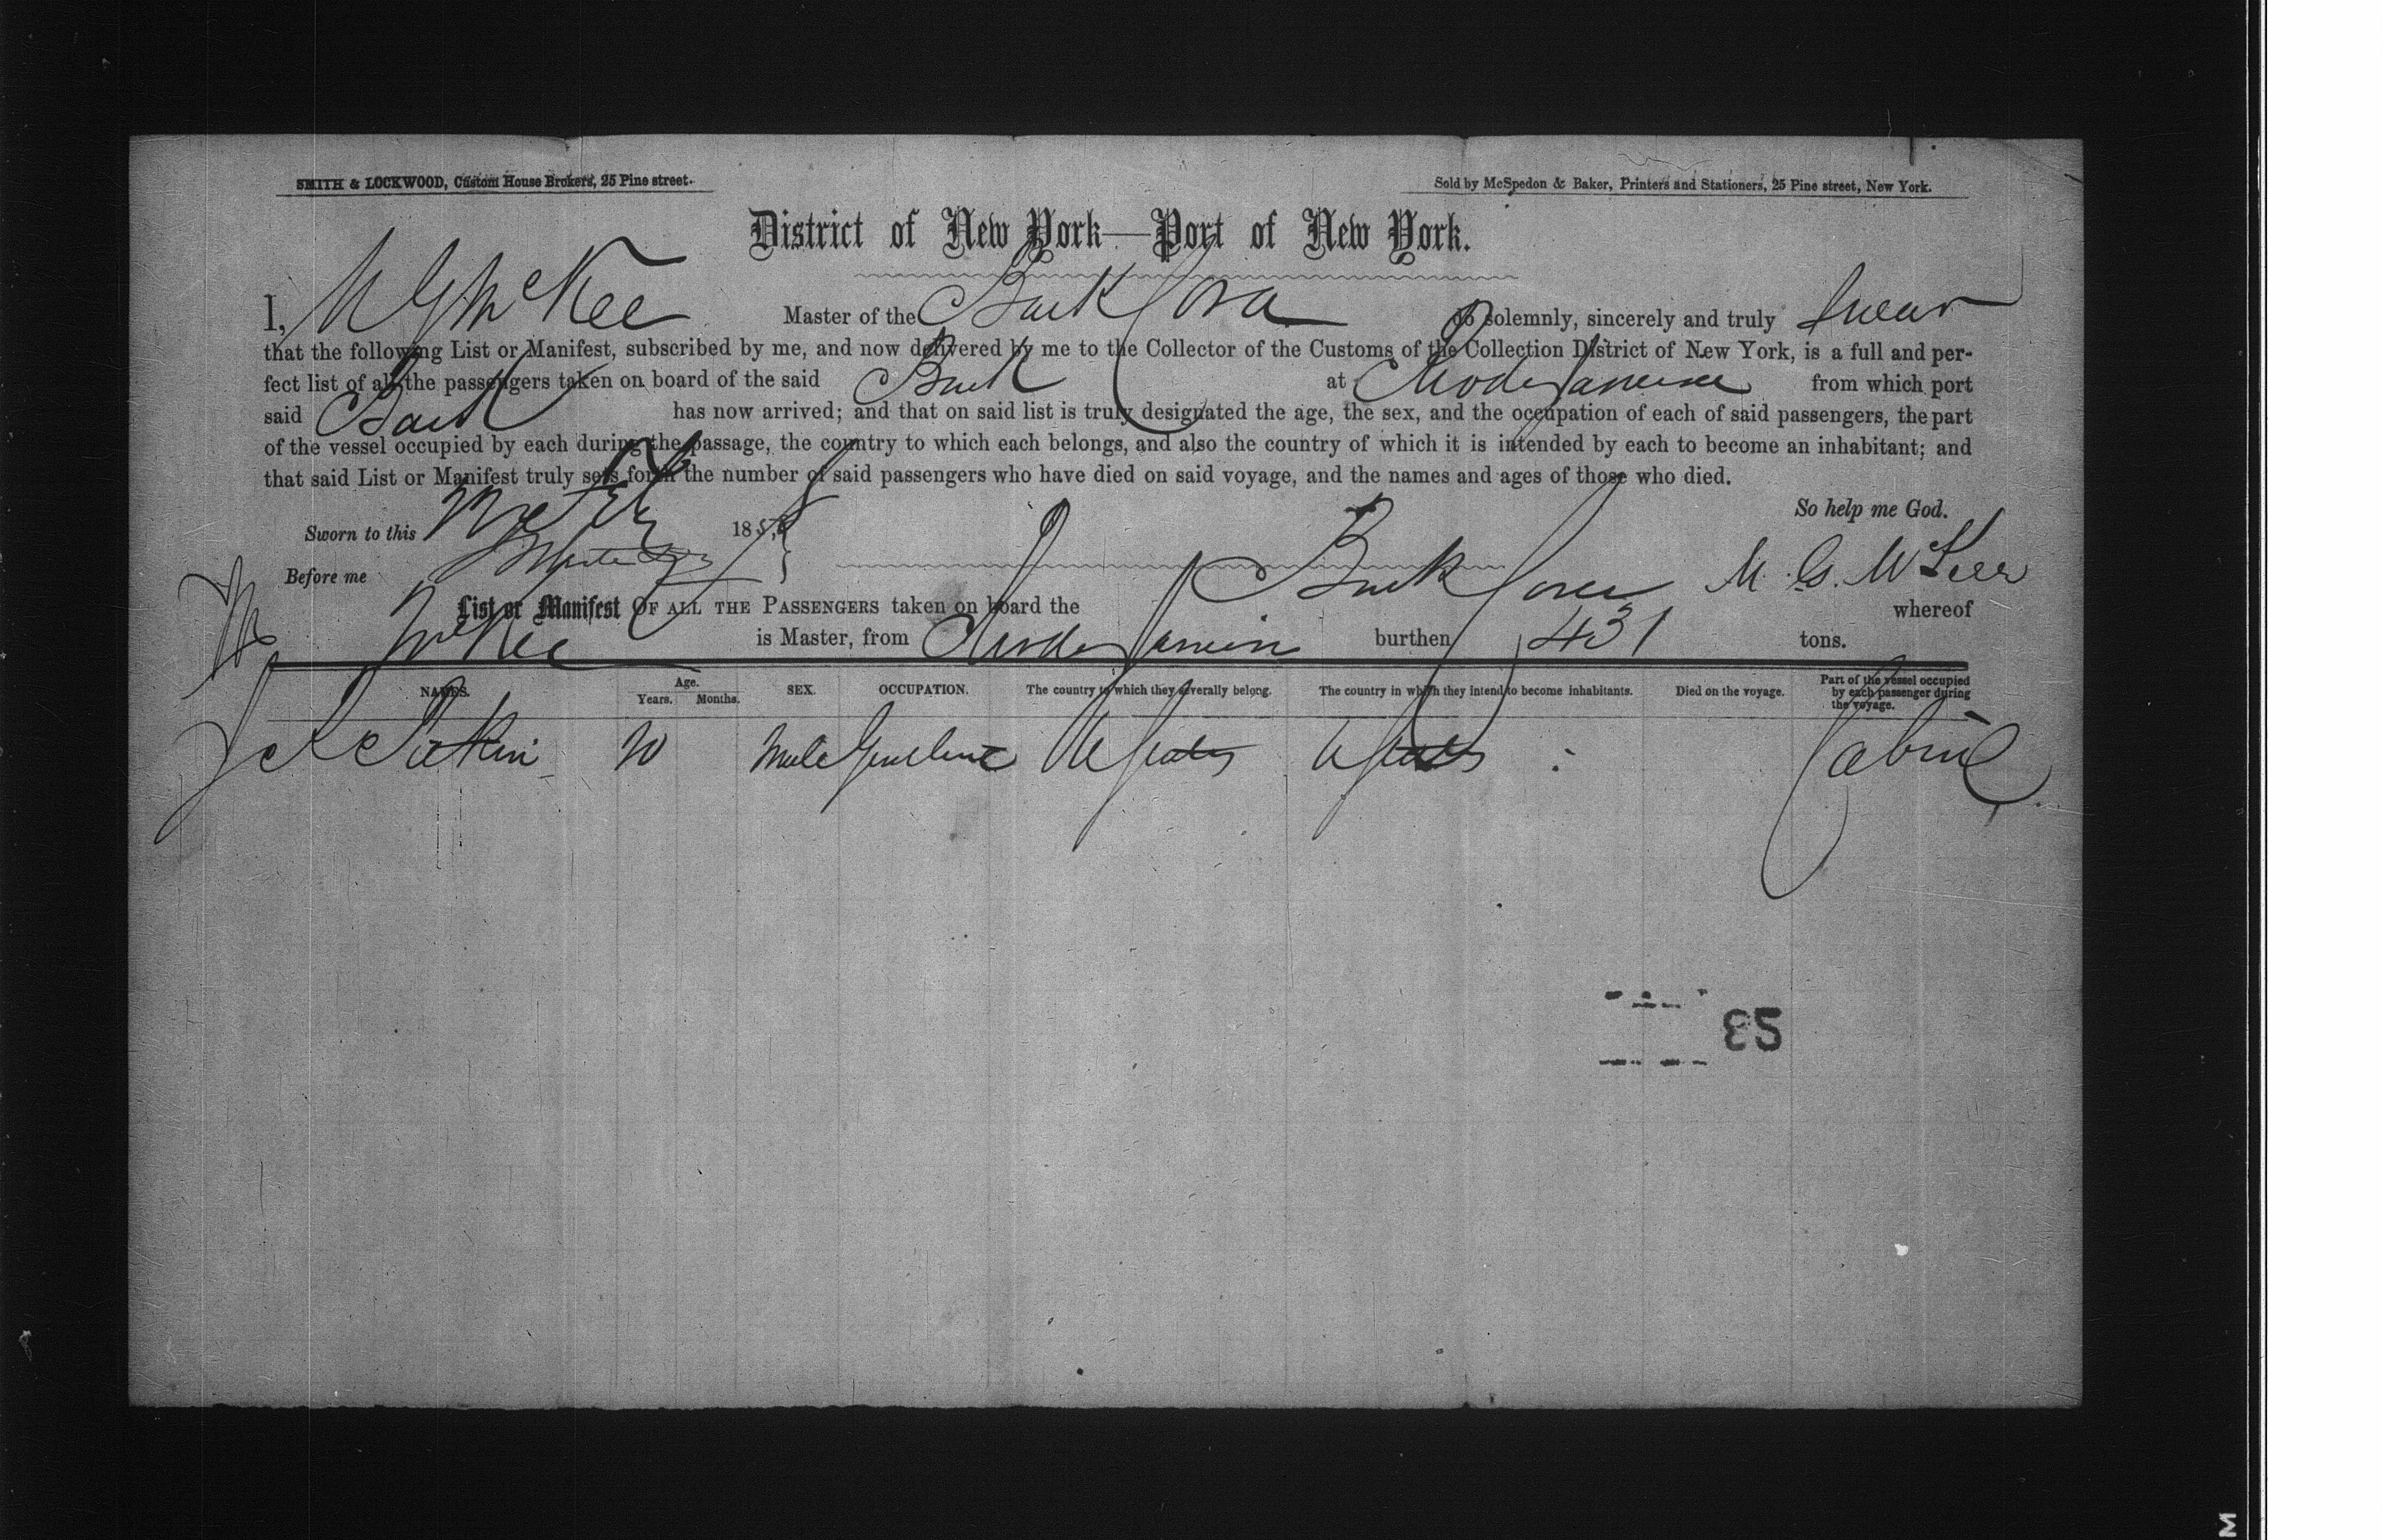 SMITH & LOCKWOOD, Custom House Brokers, 25 Pine street.
Sold by McSpedon & Baker, Printers and Stationers, 25 Pine street, New York.
District of New York—Port of New York.
I, M G McKee Master of the Bark Cora do solemnly, sincerely and truly swear
that the following List or Manifest, subscribed by me, and now delivered by me to the Collector of the Customs of the Collection District of New York, is a full and per-
fect list of all the passengers taken on board of the said Bark at Rio de Janeiro from which port
said Bark has now arrived; and that on said list is truly designated the age, the sex, and the occupation of each of said passengers, the part
of the vessel occupied by each during the passage, the country to which each belongs, and also the country of which it is intended by each to become an inhabitant; and
that said List or Manifest truly sets forth the number of said passengers who have died on said voyage, and the names and ages of those who died.
So help me God.
Sworn to this 185
Before me M. G. McKee
List or Manifest OF ALL THE PASSENGERS taken on board the Bark Cora whereof
McKee is Master, from Rio de Janeiro burthen 431 tons.
NAMES. Age. Years. Months. SEX. OCCUPATION. The country to which they severally belong. The country in which they intend to become inhabitants. Died on the voyage. Part of the vessel occupied by each passenger during the voyage.
Male U States U States Cabin
M